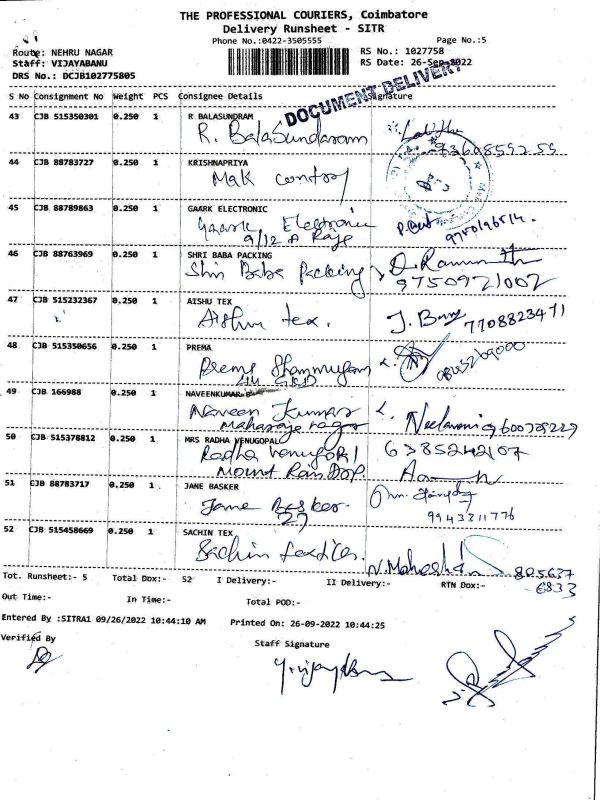 THE PROFESSIONAL COURIERS, Coimbatore
Delivery Runsheet - SITR
Phone No.:0422-3505555 Page No.:5
Route: NEHRU NAGAR RS No.: 1027758
Staff: VIJAYABANU RS Date: 26-Sep-2022
DRS No.: DCJB102775805
DOCUMENT DELIVERY
S No Consignment No Weight PCS Consignee Details Signature
43 CJB 515350301 0.250 1 R BALASUNDRAM
R. BalaSundaram
44 CJB 88783727 0.250 1 KRISHNAPRIYA
Mak control
45 CJB 88789863 0.250 1 GAARK ELECTRONIC
Gaark Electronic
9/12 A
46 CJB 88763969 0.250 1 SHRI BABA PACKING
Shri Baba Packing 9750921002
47 CJB 515232367 0.250 1 AISHU TEX
Aishu tex. 7708823471
48 CJB 515350656 0.250 1 PREMA
Prema Shanmugam
49 CJB 166988 0.250 1 NAVEENKUMAR
Naveen Kumar
Maharaja nagar
50 CJB 515378812 0.250 1 MRS RADHA VENUGOPAL 6385242107
Radha Venugopal
Mount Rain Drop
51 CJB 88783717 0.250 1 JANE BASKER
Jane Basker 9943211776
27
52 CJB 515458669 0.250 1 SACHIN TEX
Sachin textiles.
Tot. Runsheet:- 5 Total Dox:- 52 I Delivery:- II Delivery:- RTN Dox:-
6833
Out Time:- In Time:- Total POD:-
Entered By :SITRA1 09/26/2022 10:44:10 AM Printed On: 26-09-2022 10:44:25
Verified By Staff Signature